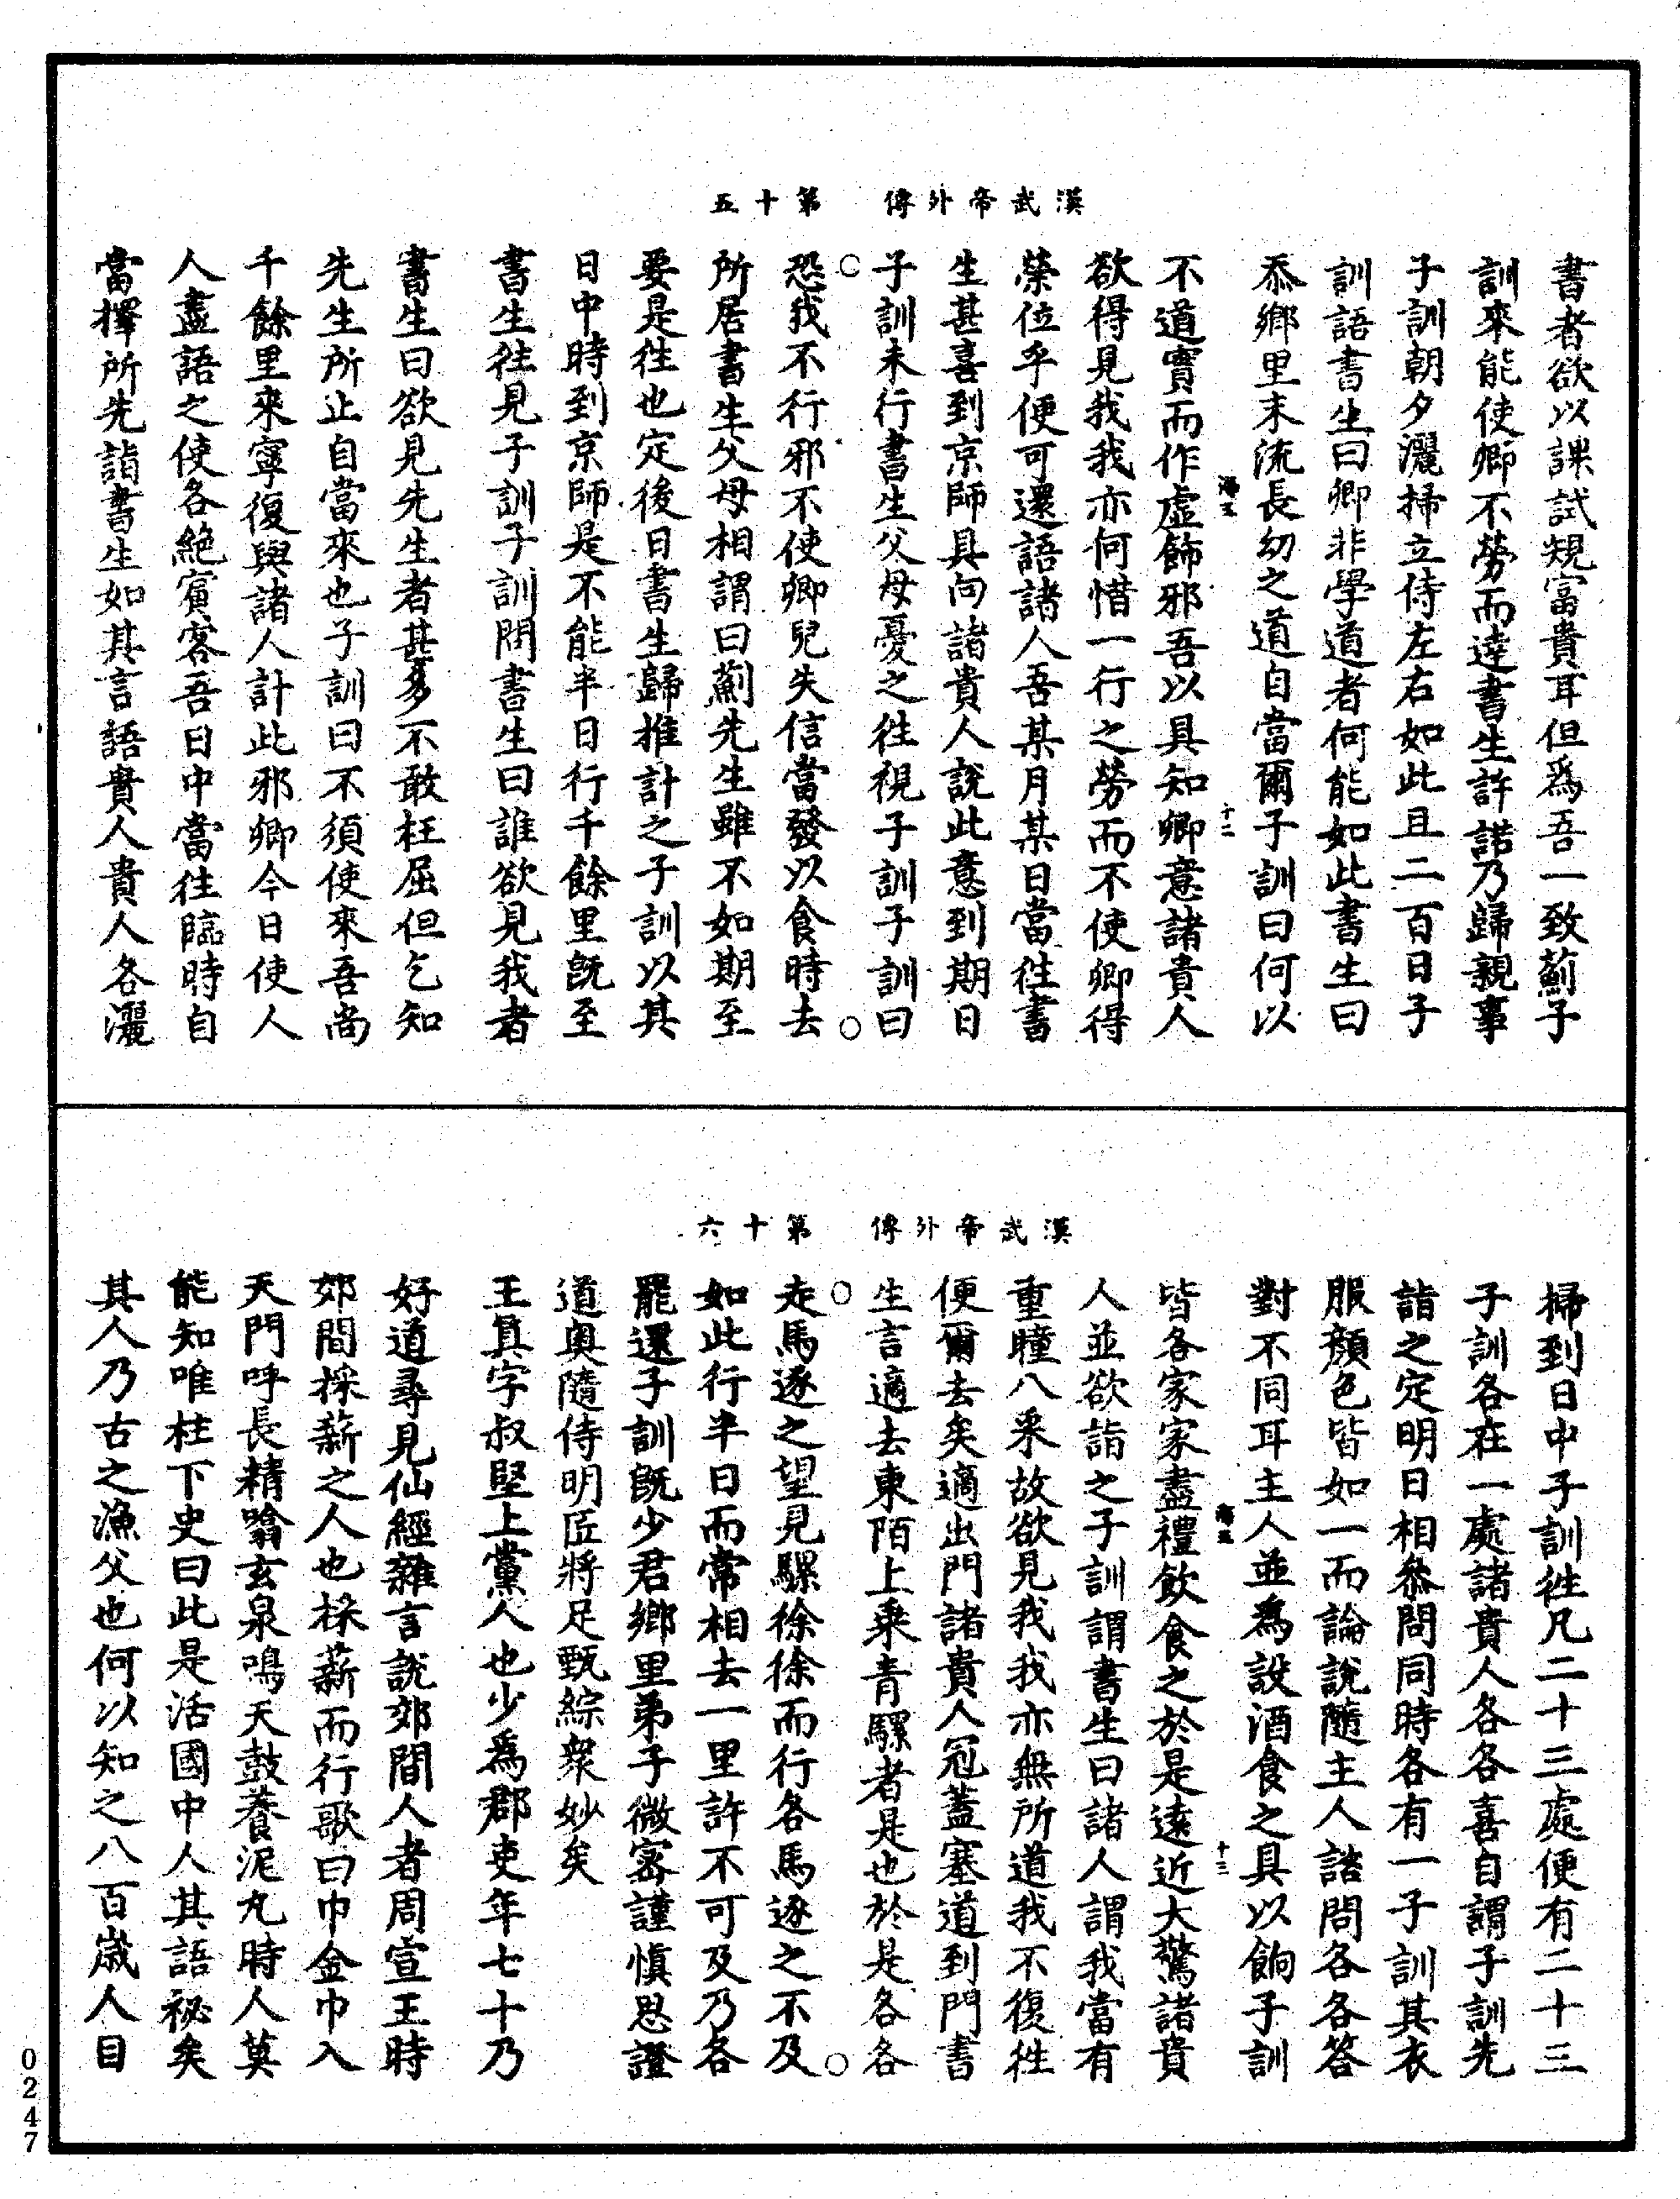 漢武帝外傳　第十五
書者欲以課試規富貴耳但爲吾一致薊子
訓來能使卿不勞而達書生許諾乃歸親事
子訓朝夕灑掃立侍左右如此且二百日子
訓語書生曰卿非學道者何能如此書生曰
忝鄉里末流長幼之道自當爾子訓曰何以
十二
不道實而作虛飾邪吾以具知卿意諸貴人
欲得見我我亦何惜一行之勞而不使卿得
榮位乎便可還語諸人吾某月某日當往書
生甚喜到京師具向諸貴人說此意到期日
子訓未行書生父母憂之往視子訓子訓曰
恐我不行邪不使卿兒失信當發以食時去
所居書生父母相謂曰薊先生雖不如期至
要是往也定後日書生歸推計之子訓以其
日中時到京師是不能半日行千餘里旣至
書生往見子訓子訓問書生曰誰欲見我者
書生曰欲見先生者甚多不敢枉屈但乞知
先生所止自當來也子訓曰不須使來吾尚
千餘里來寧復與諸人計此邪卿今日使人
人盡語之使各絕賓客吾日中當往臨時自
當擇所先詣書生如其言語貴人貴人各灑
漢武帝外傳　第十六
掃到日中子訓往凡二十三處便有二十三
子訓各在一處諸貴人各各喜自謂子訓先
詣之定明日相叅問同時各有一子訓其衣
服顏色皆如一而論說隨主人諮問各各答
對不同耳主人並爲設酒食之具以餉子訓
十三
皆各家家盡禮飲食之於是遠近大驚諸貴
人並欲詣之子訓謂書生曰諸人謂我當有
重瞳八采故欲見我我亦無所道我不復往
便爾去矣適出門諸貴人冠蓋塞道到門書
生言適去東陌上乘青騾者是也於是各各
走馬逐之望見騾徐徐而行各馬逐之不及
如此行半日而常相去一里許不可及乃各
罷還子訓旣少君鄉里弟子微密謹愼思證
道奧隨侍明匠將足甄綜衆妙矣
王真字叔堅上黨人也少爲郡吏年七十乃
好道尋見仙經雜言說郊間人者周宣王時
郊間採薪之人也採薪而行歌曰巾金巾入
天門呼長精噏玄泉鳴天鼓養泥丸時人莫
能知唯柱下史曰此是活國中人其語祕矣
其人乃古之漁父也何以知之八百歲人目
0247